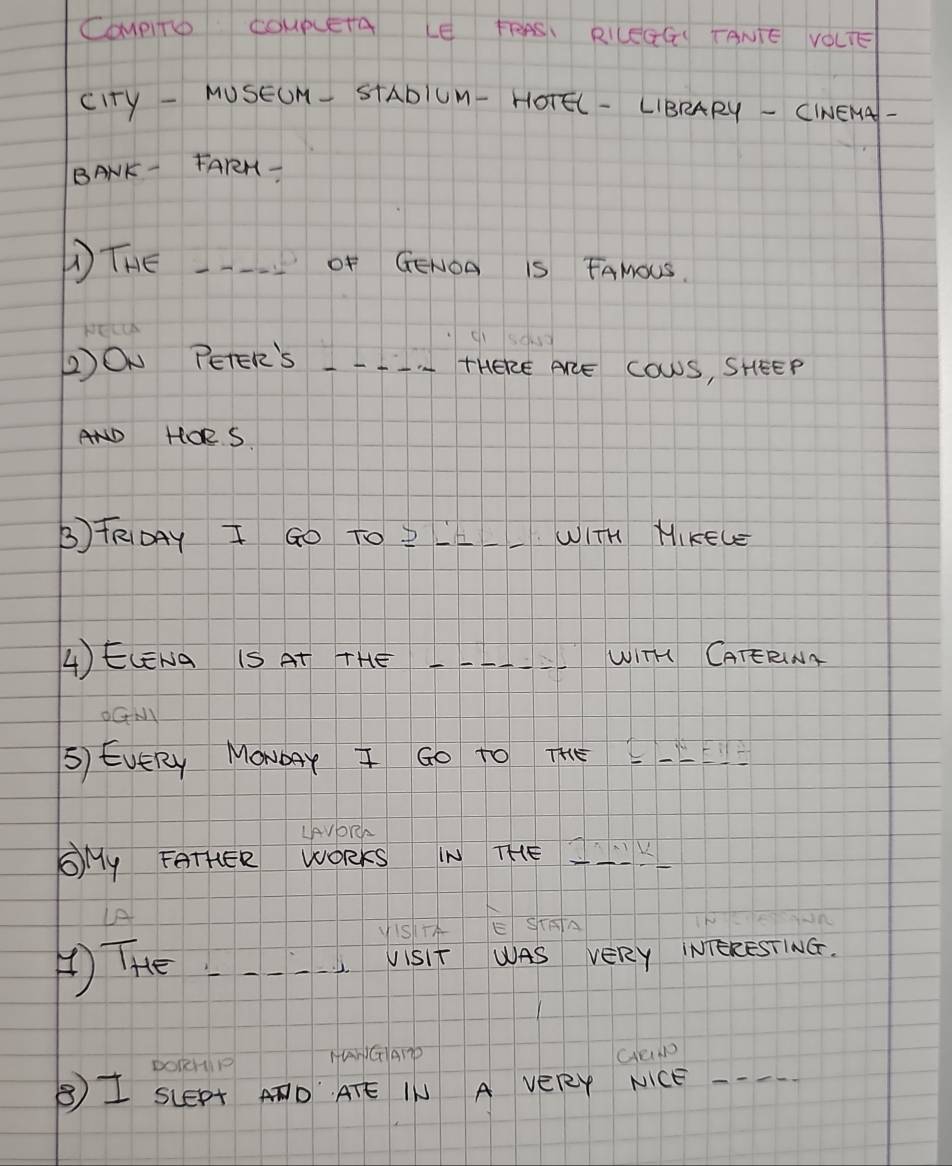 COMPITO COMPLETA LE FRASI RILEGGI TANTE VOLTE
CITY - MUSEUM - STADIUM - HOTEL - LIBRARY - CINEMA -
BANK - FARM -
1) THE ----- OF GENOA IS FAMOUS.
NELLA CI SONO
2) ON PETER'S ----- THERE ARE COWS, SHEEP
AND HORS.
3) FRIDAY I GO TO ----- WITH MIKELE
4) ELENA IS AT THE ------ WITH CATERINA
OGNI
5) EVERY MONDAY I GO TO THE ------
LAVORA
6) MY FATHER WORKS IN THE ----
LA VISITA È STATA
7) THE ------ VISIT WAS VERY INTERESTING.
DORMIP MANGIATO CARINO
8) I SLEPT AND ATE IN A VERY NICE -----